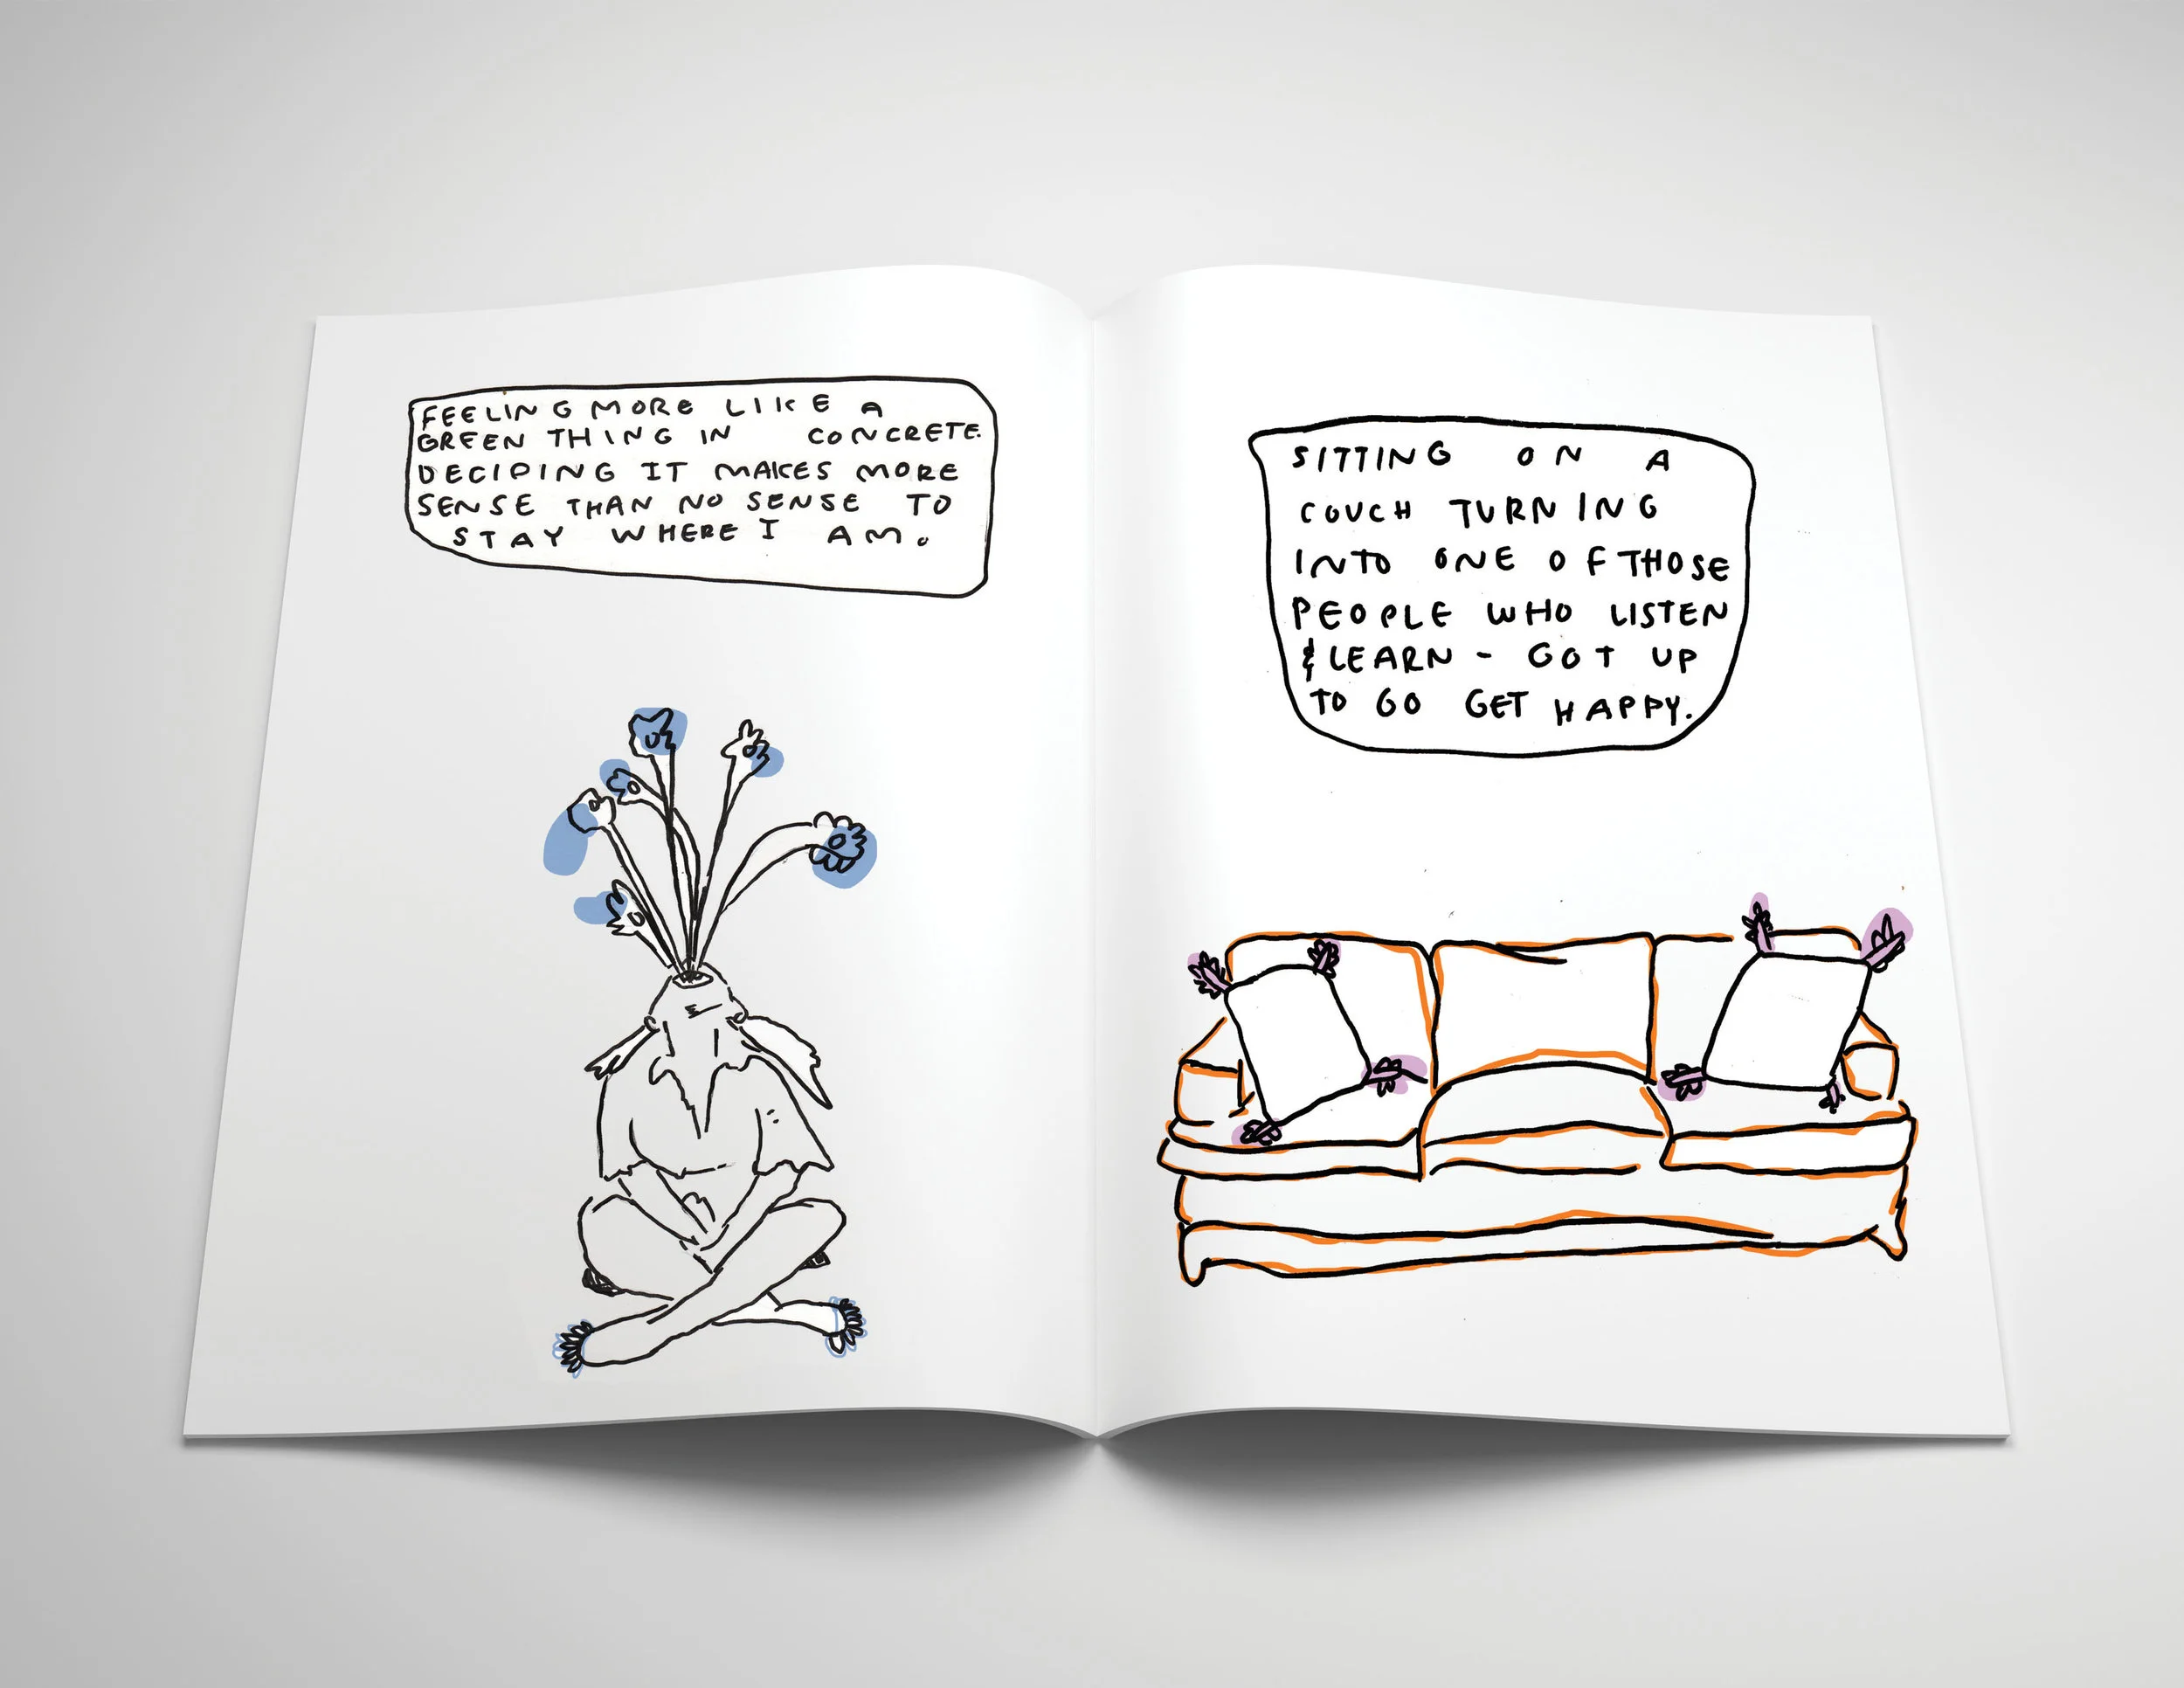 FEELING MORE LIKE A
GREEN THING IN CONCRETE.
DECIDING IT MAKES MORE
SENSE THAN NO SENSE TO
STAY WHERE I AM.
SITTING ON A
COUCH TURNING
INTO ONE OF THOSE
PEOPLE WHO LISTEN
& LEARN - GOT UP
TO GO GET HAPPY.